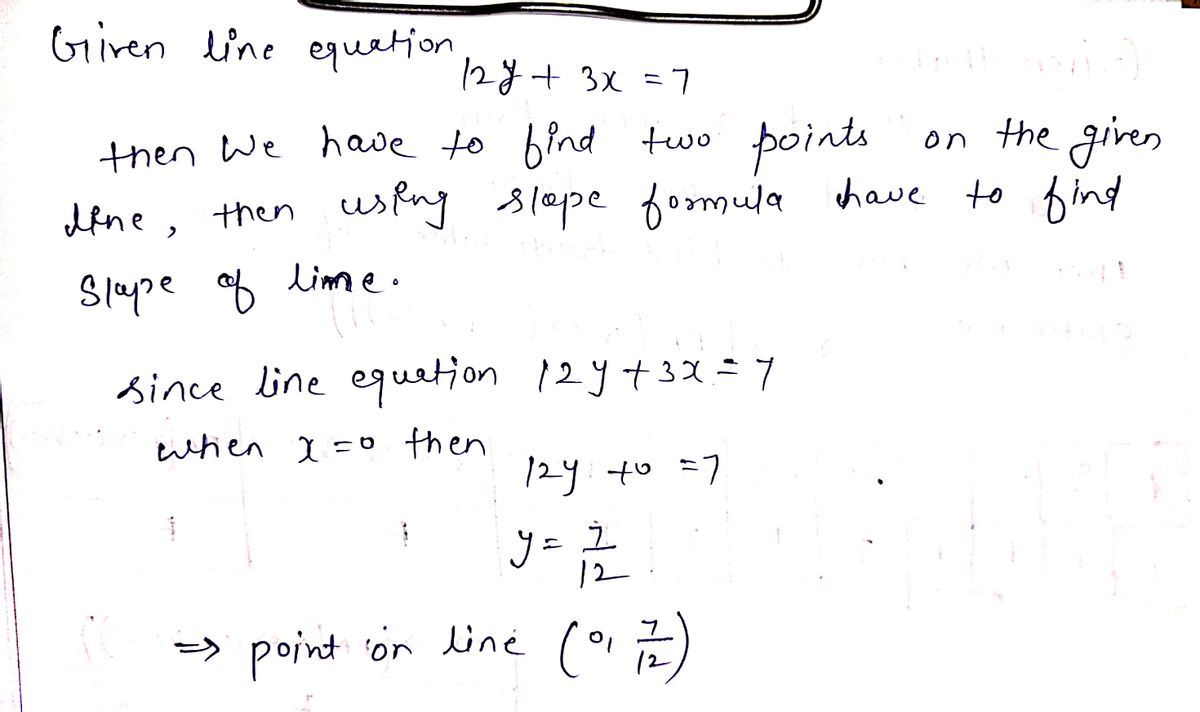 Given line equation
12y + 3x = 7
then We have to find two points on the given
line, then using slope formula have to find
Slope of line.
since line equation 12y + 3x = 7
when x = 0 then
12y + 0 = 7
y = 7/12
⇒ point on line (0, 7/12)